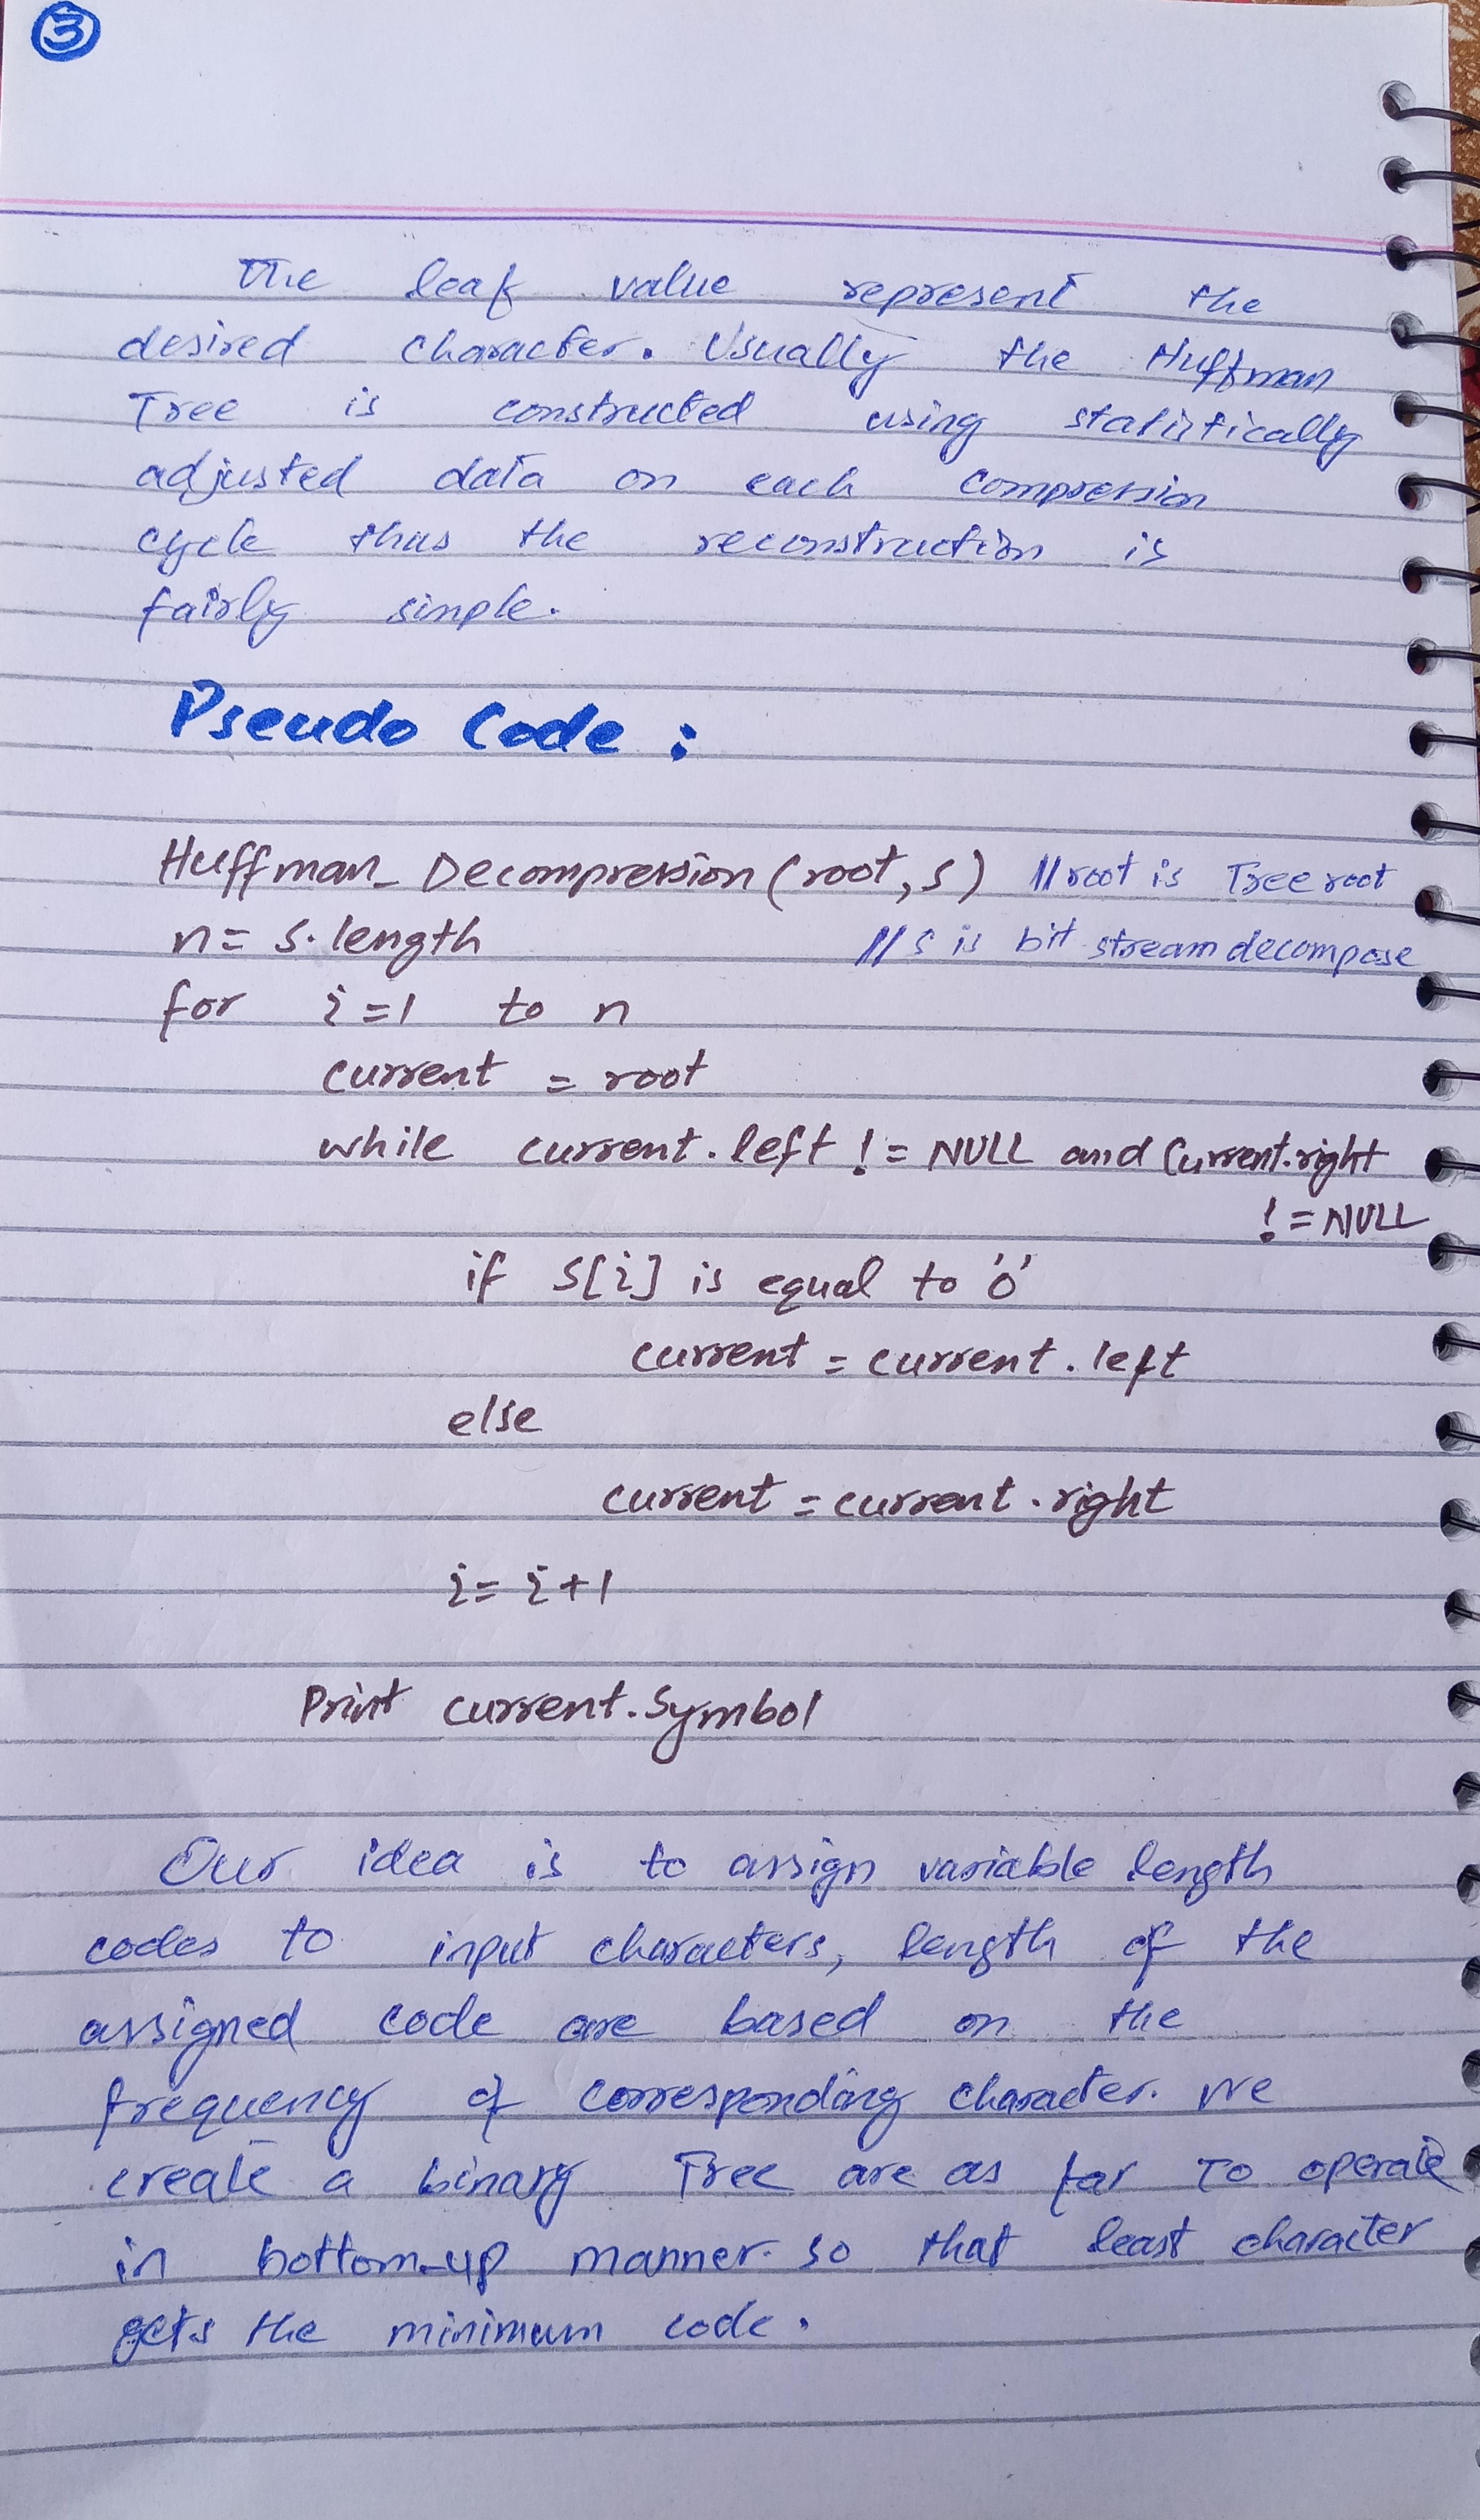 3
The leaf value represent the
desired character. Usually the Huffman
Tree is constructed using statistically
adjusted data on each compression
cycle thus the reconstruction is
fairly simple.
Pseudo Code :
Huffman_Decompression (root, S) // root is Tree root
n = S.length // S is bit stream decompose
for i=1 to n
current = root
while current.left != NULL and Current.right
!= NULL
if S[i] is equal to '0'
current = current.left
else
current = current.right
i = i+1
Print current.Symbol
Our idea is to assign variable length
codes to input characters, length of the
assigned code are based on the
frequency of corresponding character. We
create a binary Tree are as far To operate
in bottom-up manner. so that least character
gets the minimum code.